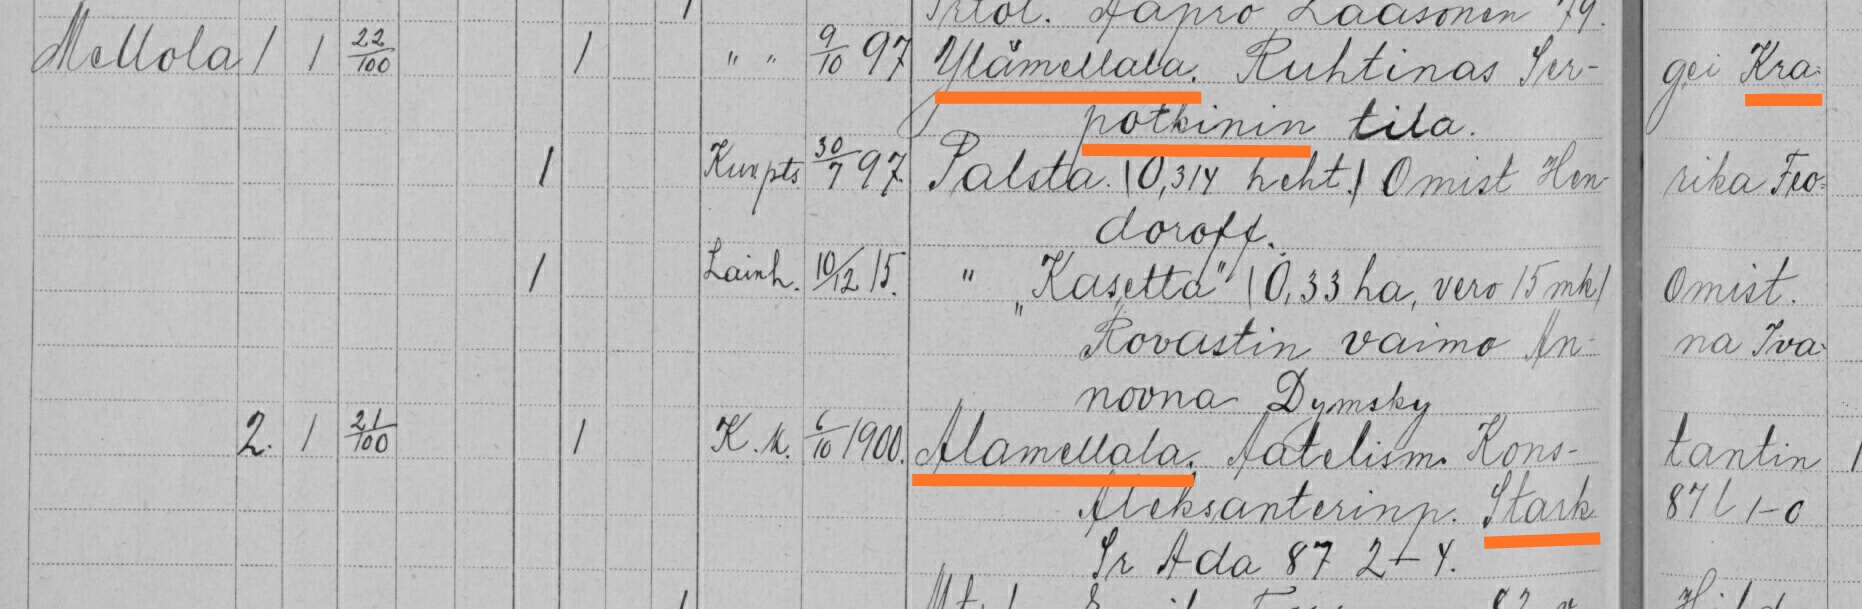 Prtol. Aapro Laasonen 79.
Mellola 1 1 22/100 1 " " 9/10 97 Ylämellala. Ruhtinas Ser- gei Kra-
potkinin tila.
1 Kunpts. 30/7 97. Palsta. (0,314 heht.) Omist Hen- rika Feo-
doroff.
1 Lainh. 10/12 15. " "Kasetta" (0,33 ha, vero 15 mk) Omist.
Rovastin vaimo An- na Iva-
novna Dymsky
2. 1 21/100 1 K.M. 6/10 1900. Alamellala. Aatelism. Kons- tantin
Aleksanterinp. Stark 87 l 1-0
Sr Ada 87 2-4.